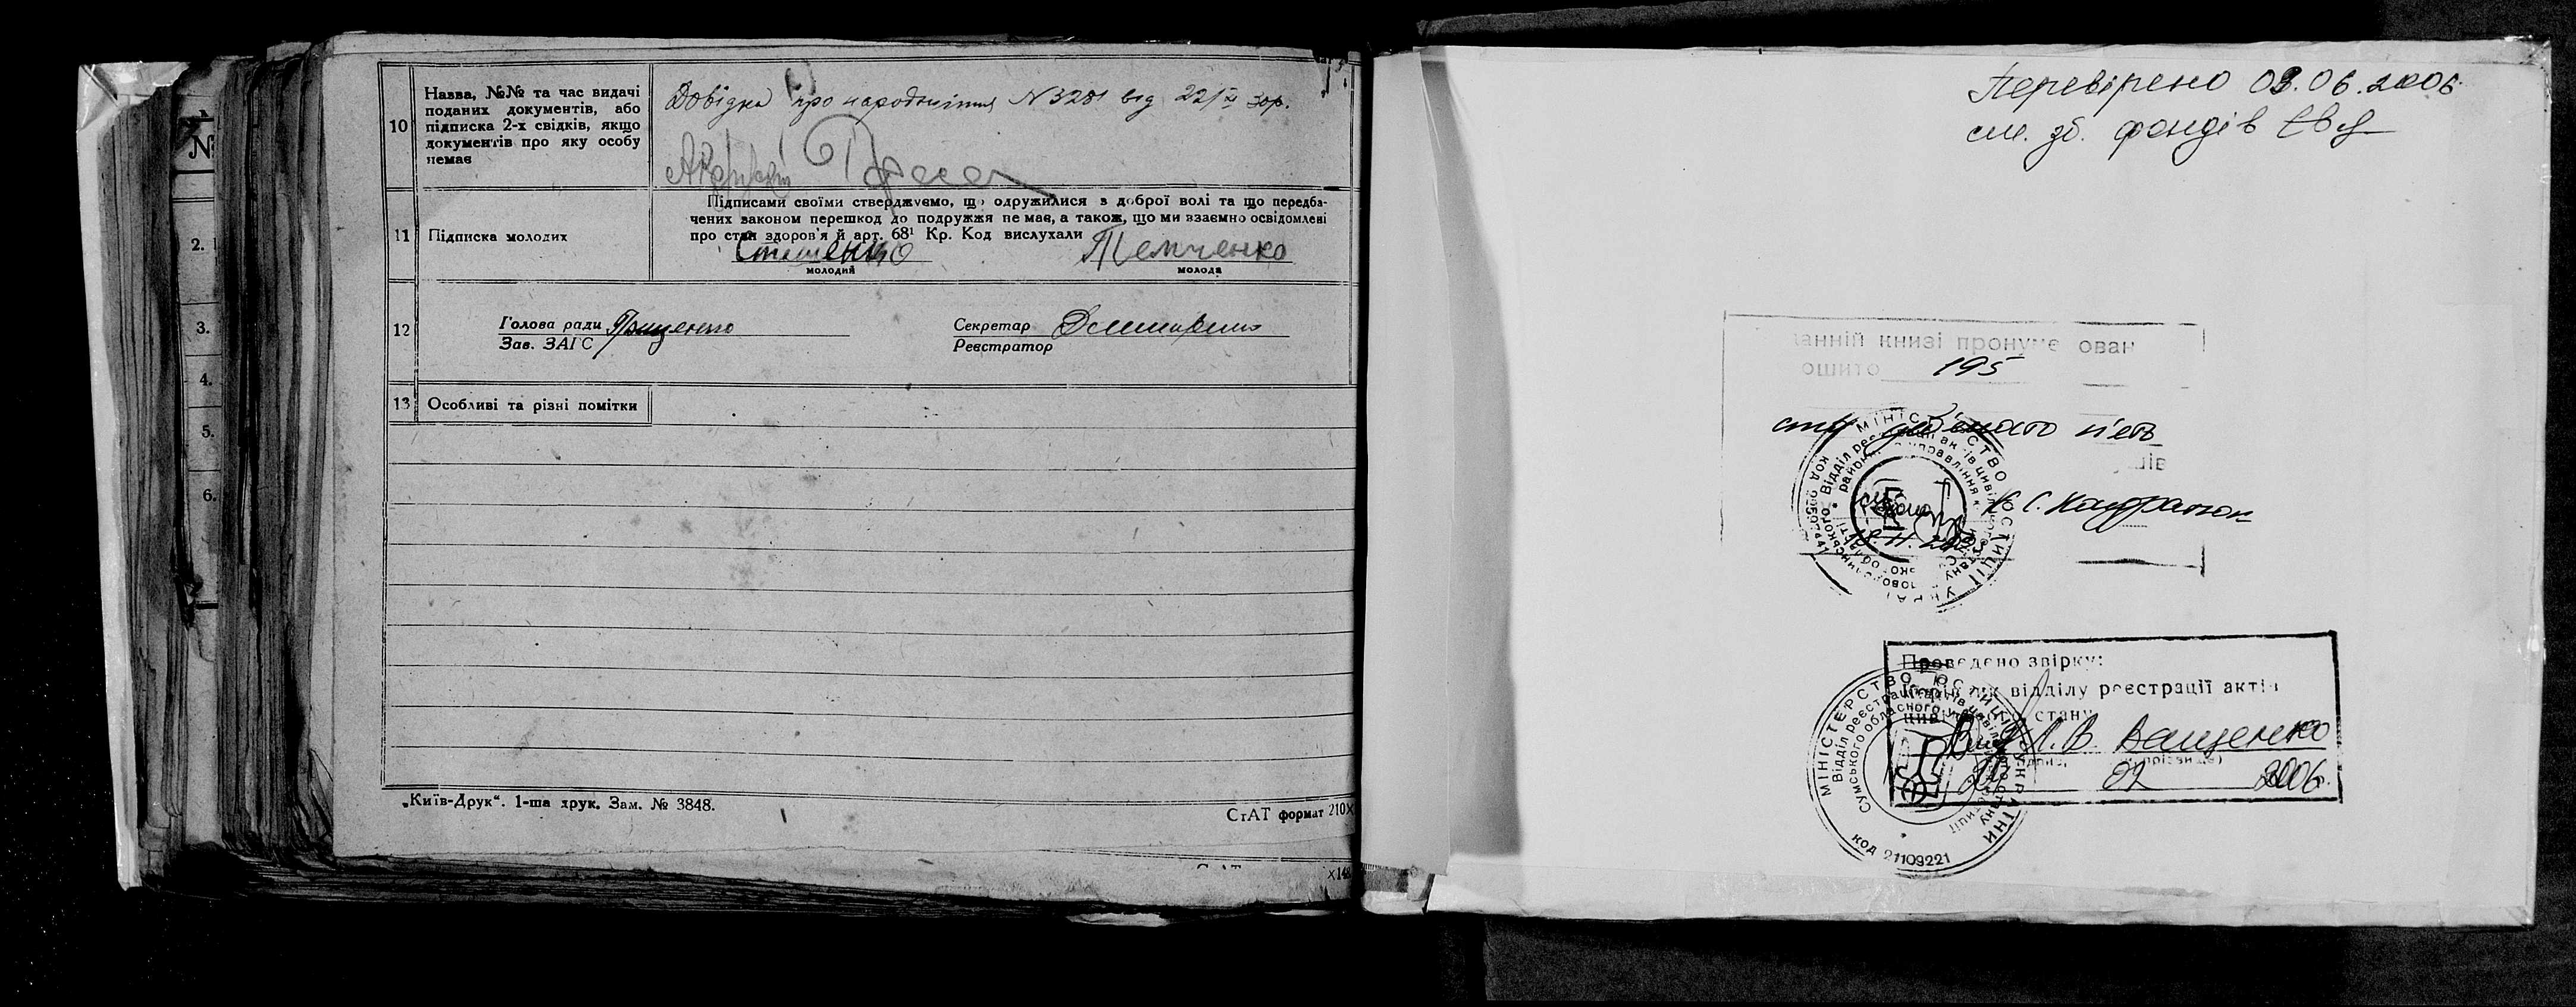 №
2.
3.
4.
5.
6.
10
Назва, №№ та час видачі
поданих документів, або
підписка 2-х свідків, якщо
документів про яку особу
немає
Довідка про народження N 3281 від 22/ 30р.
11
Підписка молодих
Підписами своїми стверджуємо, що одружилися з доброї волі та що передба-
чених законом перешкод до подружжя не має, а також, що ми взаємно освідомлені
про стан здоров'я й арт. 68¹ Кр. Код вислухали
Темченко
молодий
молода
12
Голова ради Грищенко
Зав. ЗАГС
Секретар
Реєстратор
13
Особливі та різні помітки
„Київ-Друк“. 1-ша друк. Зам. № 3848.
СтАТ формат 210×
×148
Перевірено 03.06.2006
см. зб. фондів
анній книзі пронуме ован
ошито 195
сто дев'яносто п'ять
МІНІС СТВО ЮСТИЦІЇ УКРАЇ
Проведено звірку:
відділу реєстрації актів
цивільного стану
Л.В. Ващенко
02 2006р.
МІНІСТЕРСТВО ЮСТИЦІЇ УКРАЇНИ
Відділ реєстрації актів цивільного стану
Сумського обласного управління юстиції
код 21109221